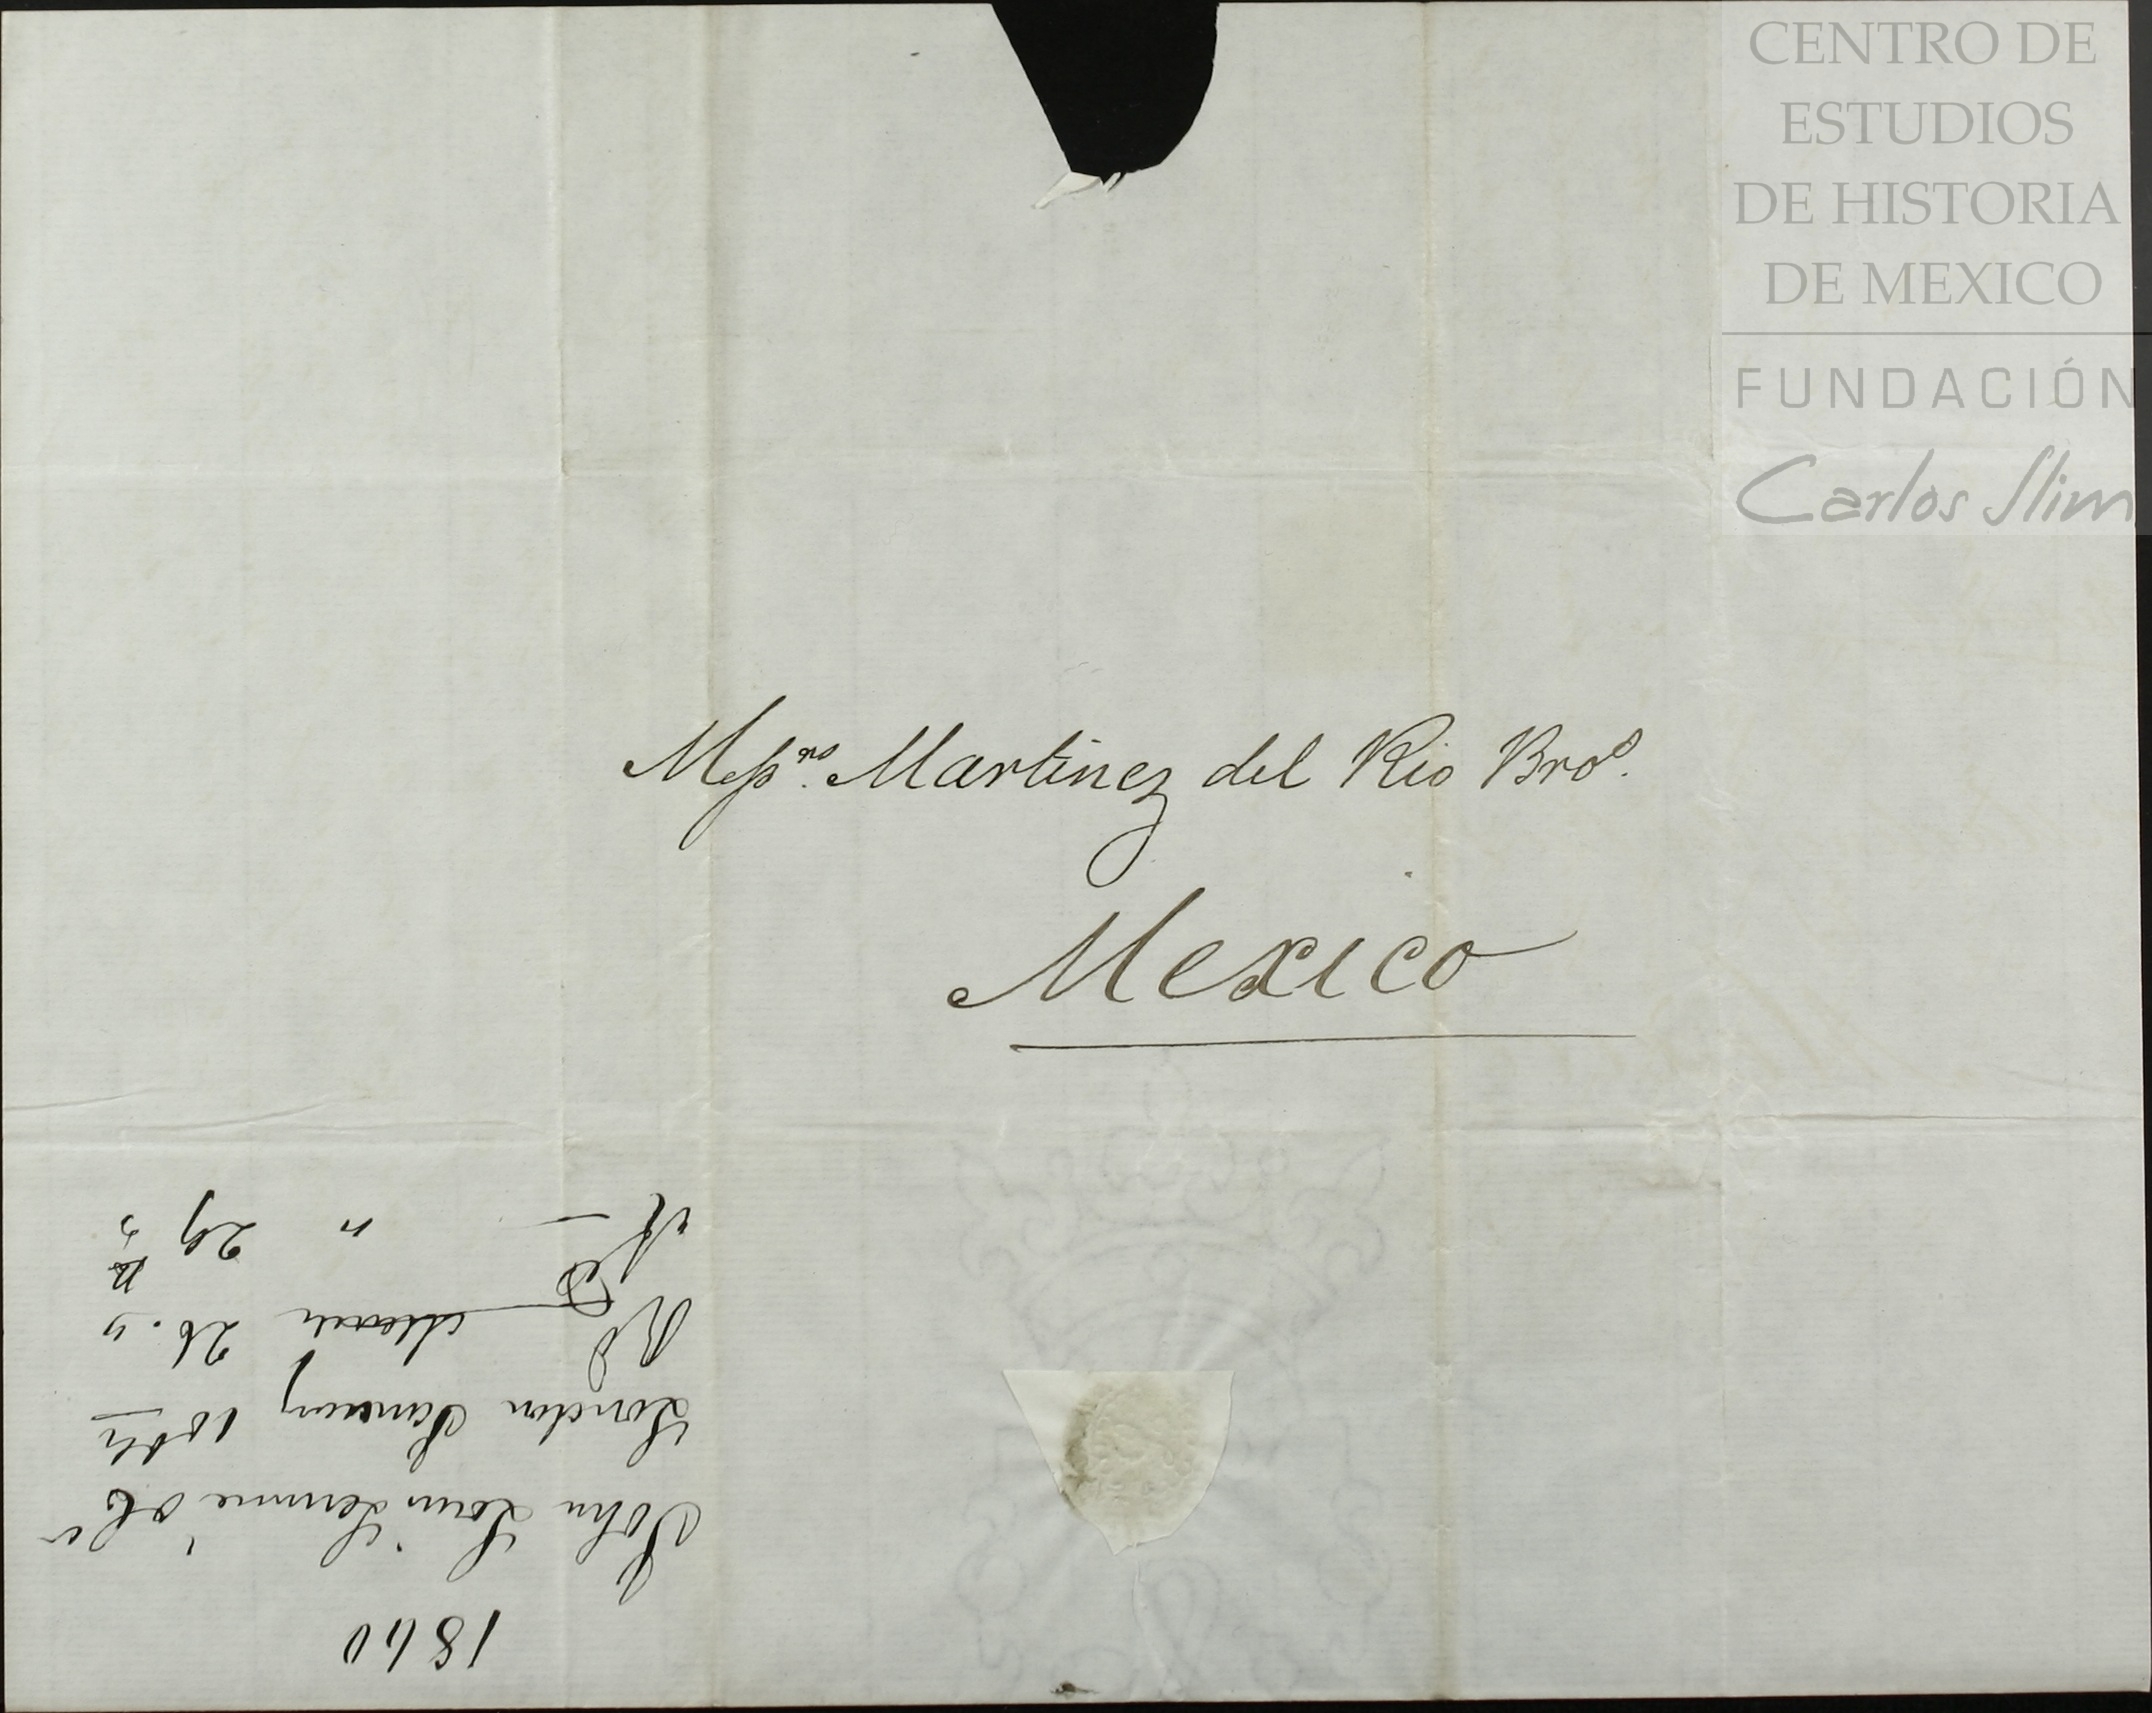 CENTRO DE
ESTUDIOS
DE HISTORIA
DE MEXICO
FUNDACIÓN
Carlos Slim
Messrs. Martinez del Rio Bros.
Mexico
1840
John Louis Lemme & Co
London January 10th
Rd March 26.
" 29